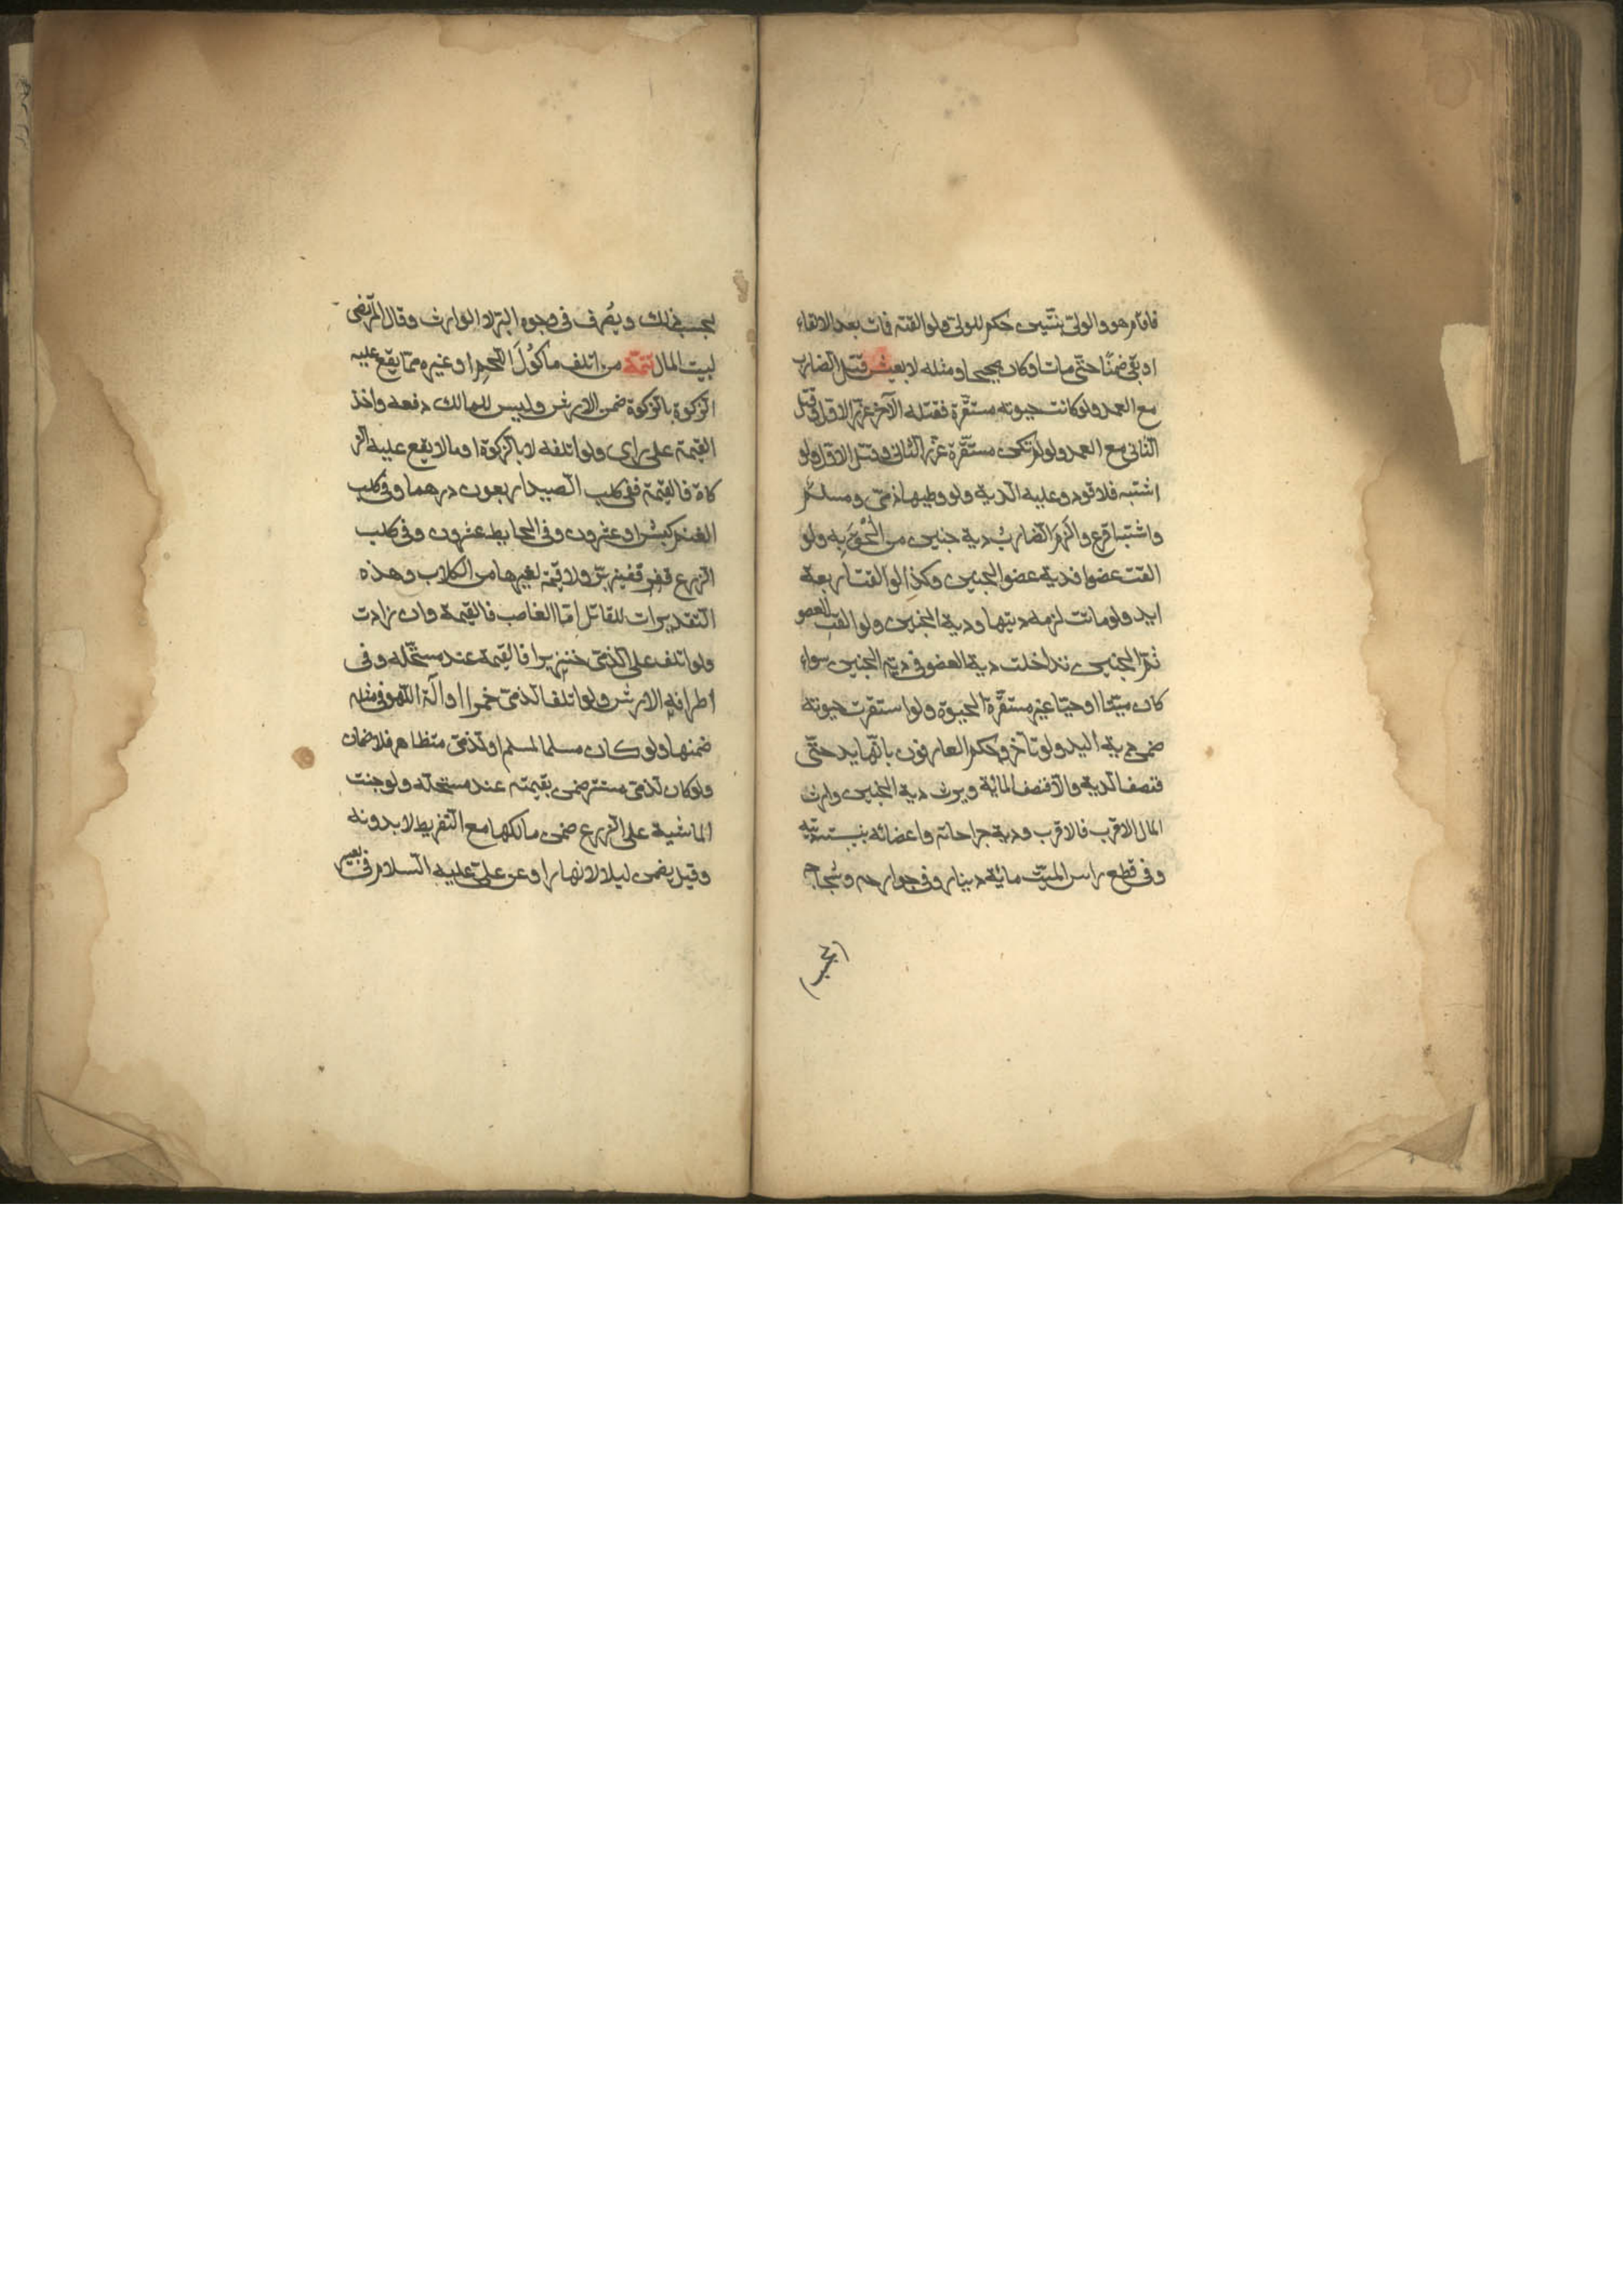 فاقام هو والولى بينتين حكم للولى ولو القته فمات بعد الالقاء
او بقى ضمنا حتى مات او كان صحيحا ومثله لا يعيش قتل الضارب
مع العمد ولو كانت حيوته مستقرة فقتله الآخر عزر الاول وقتل
الثانى مع العمد ولو لم تكن مستقرة عزر الثانى وقتل الاول ولو
اشتبه فلا قود وعليه الدية ولو وطيها ذمى ومسلم
واشتبه اقرع والزم الضارب دية جنين من اُلحِقَ به ولو
القت عضوا فدية عضو الجنين وكذا لو القت اربعة
ايد ولو ماتت لزمه ديتها ودية الجنين ولو القت العضو
ثم الجنين تداخلت دية العضو فى دية الجنين سواء
كان ميتا او حيا غير مستقرة الحيوة ولو استقرت حيوته
ضمن دية اليد ولو تأخر وحكم العارفون بانها يد حى
فنصف الدية والا فنصف الماية ويرث دية الجنين وارث
المال الاقرب فالاقرب ودية جراحاته واعضائه بنسبة ديته
وفى قطع راس الميت ماية دينار وفى جوارحه وشجاجه
بحسب ذلك ويصرف فى وجوه البر لا الوارث وقال المرتضى
لبيت المال تتمة من اتلف ماكُولَ اللحم او غيره مما يقع عليه
الزكوة بالزكوة ضمن الارش وليس للمالك دفعه واخذ
القيمة على راى ولو اتلفه لا بالزكوة او ما لا يقع عليه الز
كاة فالقيمة ففى كلب الصيد اربعون درهما وفى كلب
الغنم كبش او عشرون وفى الحايط عشرون وفى كلب
الزرع قفيز بر ولا قيمة لغيرها من الكلاب وهذه
التقديرات للقاتل اما الغاصب فالقيمة وان زادت
ولو اتلف على الذمى خنزيرا فالقيمة عند مستحله وفى
اطرافه الارش ولو اتلف الذمى خمرا او آلة اللهو فى مثله
ضمنها ولو كان مسلما لمسلم او لذمى متظاهر فلا ضمان
ولو كان لذمى مستتر ضمن بقيمته عند مستحله ولو جنت
الماشية على الزرع ضمن مالكها مع التفريط لا بدونه
وقيل يضمن ليلا لا نهارا وعن على عليه السلام فى بعير